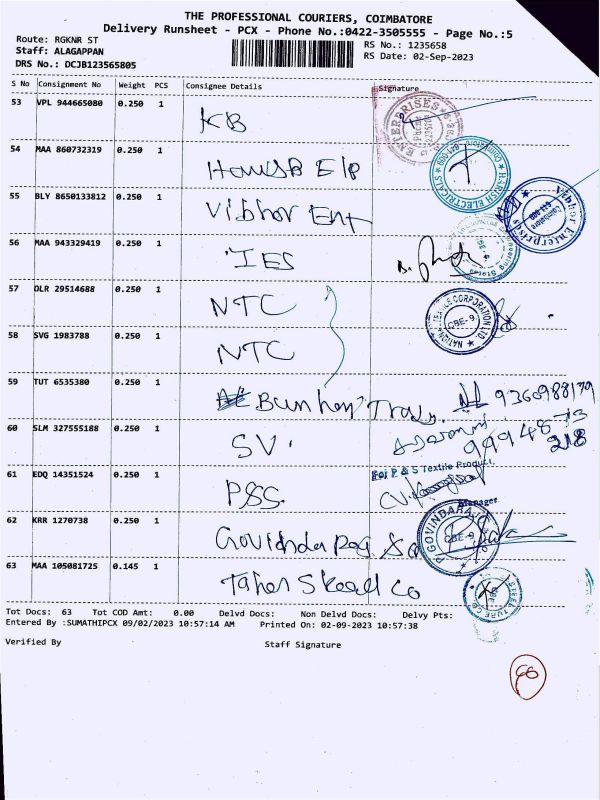 THE PROFESSIONAL COURIERS, COIMBATORE
Delivery Runsheet - PCX - Phone No.:0422-3505555 - Page No.:5
Route: RGKNR ST
RS No.: 1235658
Staff: ALAGAPPAN
RS Date: 02-Sep-2023
DRS No.: DCJB123565805
S No Consignment No Weight PCS Consignee Details Signature
53 VPL 944665080 0.250 1 KB
ENTERPRISES
54 MAA 860732319 0.250 1
HARISH ELECTRICALS
55 BLY 8650133812 0.250 1 Vibhor Ent
Vibhor Enterprises
56 MAA 943329419 0.250 1 IES
57 OLR 29514688 0.250 1 NTC
NATIONAL TEXTILE CORPORATION LTD
CBE-9
58 SVG 1983788 0.250 1 NTC
59 TUT 6535380 0.250 1 9360988179
60 SLM 327555188 0.250 1 SV.
99948-73
218
61 EDQ 14351524 0.250 1 PSS
For P & S Textile Product,
Manager
62 KRR 1270738 0.250 1 Govindaraj
P.GOVINDARAJ
CBE-9
63 MAA 105081725 0.145 1 Co
Tot Docs: 63 Tot COD Amt: 0.00 Delvd Docs: Non Delvd Docs: Delvy Pts:
Entered By :SUMATHIPCX 09/02/2023 10:57:14 AM Printed On: 02-09-2023 10:57:38
Verified By Staff Signature